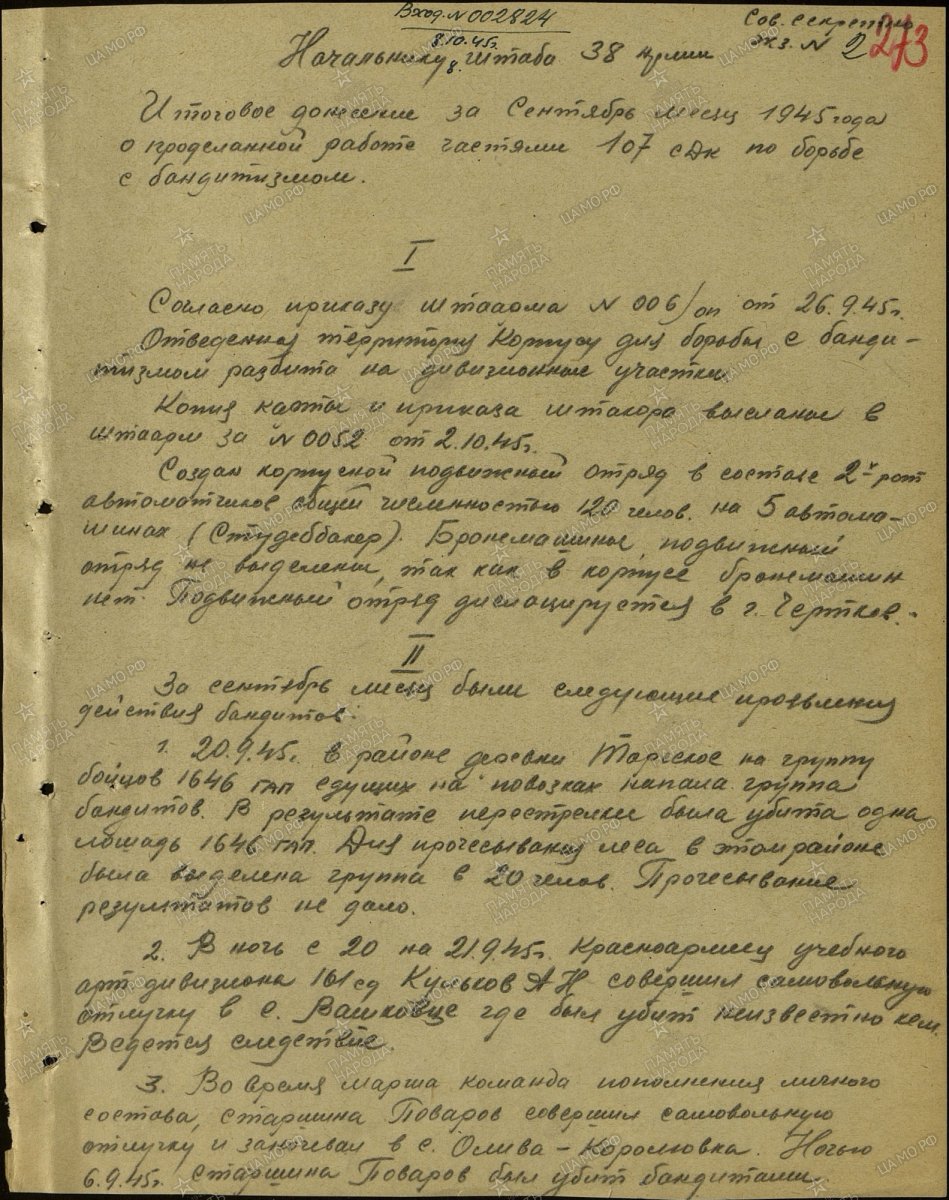 Вход. № 002824
8.10.45г.
Сов. Секретно
экз. № 2
273
Начальнику Штаба 38 Армии
8.
Итоговое донесение за Сентябрь месяц 1945 года
о проделанной работе частями 107 сдк по борьбе
с бандитизмом.
I
Согласно приказу штаарма № 006/оп от 26.9.45г.
Отведенная территория Корпусу для борьбы с банди-
тизмом разбита на дивизионные участки
Копия карты и приказа штакора высланы в
штаарм за № 0052 от 2.10.45г.
Создан корпусной подвижный отряд в составе 2х рот
автоматчиков общей численностью 120 челов. на 5 автома-
шинах (Студеббакер). Бронемашины, подвижный
отряд не выделены, так как в корпусе бронемашин
нет. Подвижный отряд дислоцируется в г. Чертков.-
II
За сентябрь месяц были следующие проявления
действия бандитов:
1. 20.9.45г. в районе деревни на группу
бойцов 1646 гап едущих на повозках напала группа
бандитов. В результате перестрелки была убита одна
лошадь 1646 гап. Для прочесывания леса в этом районе
была выделена группа в 20 челов. Прочесывание
результатов не дало.
2. В ночь с 20 на 21.9.45г. Красноармеец учебного
арт. дивизиона 161 сд Кульков А Н совершил самовольную
отлучку в с. Вашковце где был убит неизвестно кем.
Ведется следствие.
3. Во время марша команда пополнения личного
состава, старшина Поваров совершил самовольную
отлучку и заночевал в с. Олива-Королювка. Ночью
6.9.45г. старшина Поваров был убит бандитами.
ПАМЯТЬ НАРОДА
ЦА МО РФ